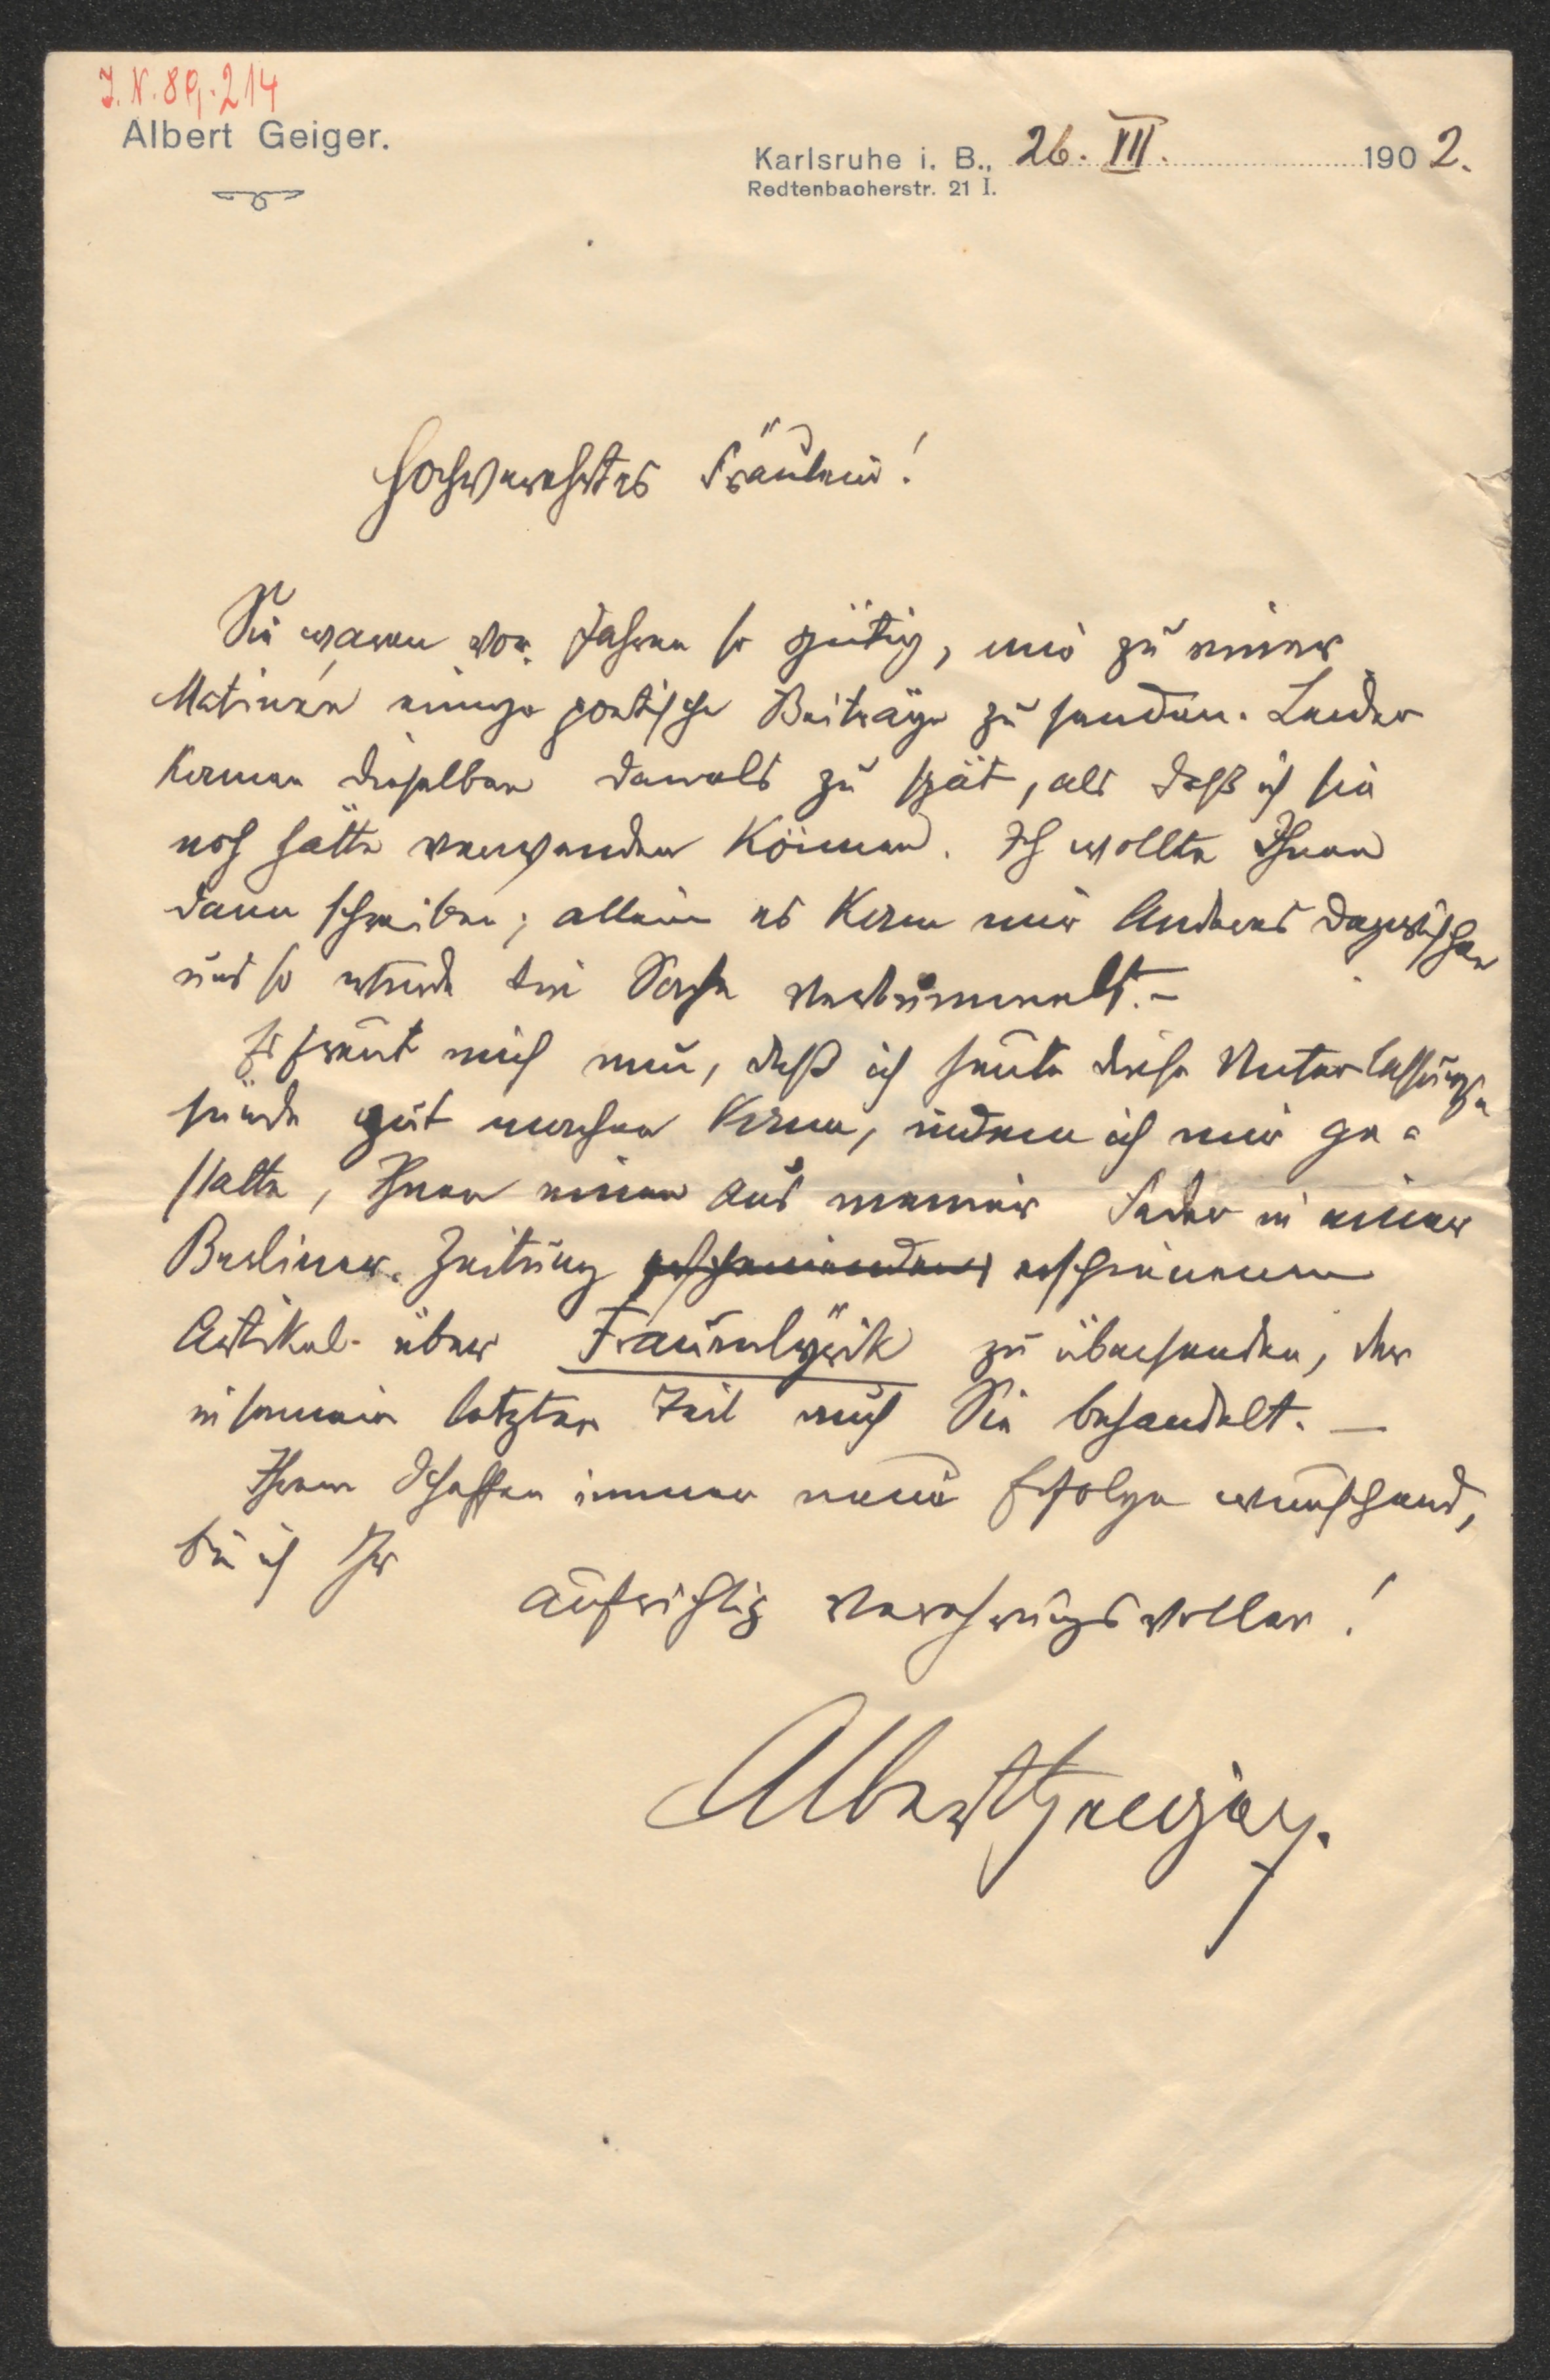 J. N. 89.214
Albert Geiger.
Karlsruhe i. B., 26. VII. 1902.
Redtenbacherstr. 21 I.
Hochverehrtes Fräulein!
Sie waren vor Jahren so gütig, mir zu einer
Matinée einige poetische Beiträge zu senden. Leider
kamen dieselben damals zu spät, als daß ich sie
noch hätte verwenden können. Ich wollte Ihnen
dann schreiben; allein es kam mir Anderes dazwischen
und so wurde die Sache verbummelt. –
Es freut mich nun, daß ich heute diese Unterlassungs-
sünde gut machen kann, indem ich mir ge-
statte, Ihnen einen aus meiner Feder in einer
Berliner Zeitung erscheinenden erschienenen
Artikel über Frauenlyrik zu übersenden, der
in seinem letzten Teil auch Sie behandelt. –
Ihrem Schaffen immer neue Erfolge wünschend,
bin ich Ihr
aufrichtig verehrungsvoller!
Albert Geiger.